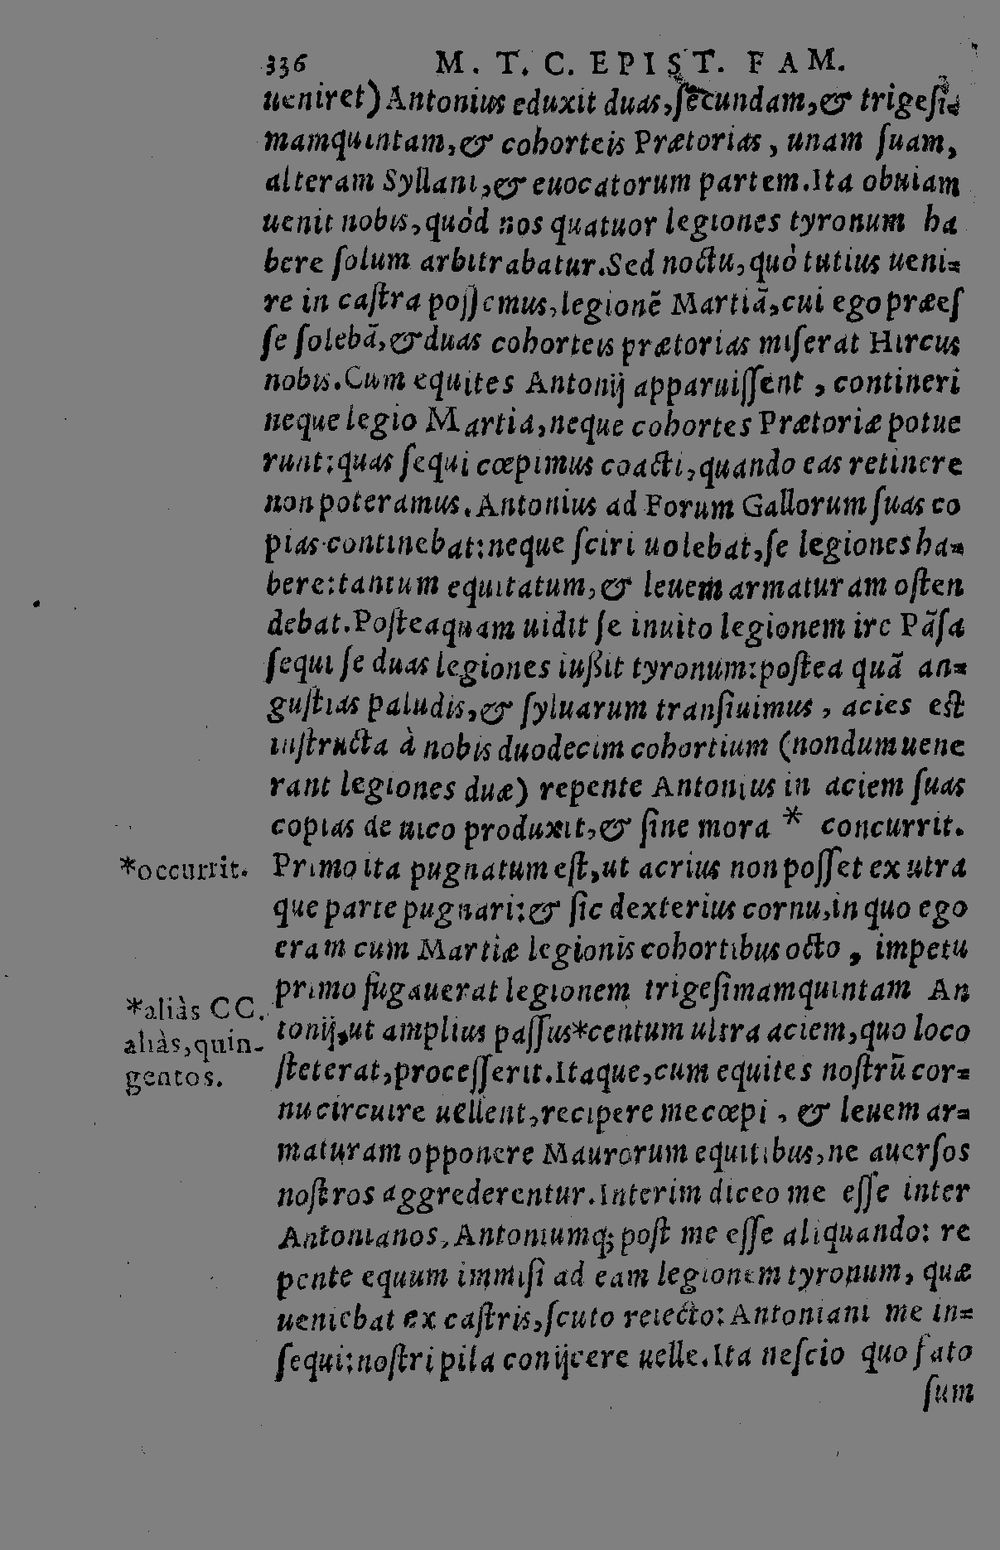 336 M. T. C. EPIST. FAM.
ueniret) Antonius eduxit duas, ſecundam, & trigeſi-
mamquintam, & cohorteis Prætorias, unam ſuam,
alteram Syllani, & euocatorum partem. Ita obuiam
uenit nobis, quòd nos quatuor legiones tyronum ha
bere ſolum arbitrabatur. Sed noctu, quò tutius ueni-
re in caſtra poſſemus, legionē Martiā, cui ego præeſ
ſe ſolebā, & duas cohorteis prætorias miſerat Hircus
nobis. Cum equites Antonij apparuiſſent, contineri
neque legio Martia, neque cohortes Prætoriæ potue
runt: quas ſequi cœpimus coacti, quando eas retinere
non poteramus. Antonius ad Forum Gallorum ſuas co
pias continebat: neque ſciri uolebat, ſe legiones ha-
bere: tantum equitatum, & leuem armaturam oſten
debat. Poſteaquam uidit ſe inuito legionem ire Pāſa
ſequi ſe duas legiones iußit tyronum: poſtea quā an-
guſtias paludis, & ſyluarum tranſiuimus, acies eſt
inſtructa à nobis duodecim cohortium (nondum uene
rant legiones duæ) repente Antonius in aciem ſuas
copias de uico produxit, & ſine mora * concurrit.
*occurrit.
Primo ita pugnatum eſt, ut acrius non poſſet ex utra
que parte pugnari: & ſic dexterius cornu, in quo ego
eram cum Martiæ legionis cohortibus octo, impetu
primo fugauerat legionem trigeſimamquintam An
*aliàs CC.
aliàs, quin-
gentos.
tonij, ut amplius paſſus*centum ultra aciem, quo loco
ſteterat, proceſſerit. Itaque, cum equites noſtrū cor-
nu circuire uellent, recipere me cœpi, & leuem ar-
maturam opponere Maurorum equitibus, ne auerſos
noſtros aggrederentur. Interim diceo me eſſe inter
Antonianos, Antoniumq; poſt me eſſe aliquando: re
pente equum immiſi ad eam legionem tyronum, quæ
ueniebat ex caſtris, ſcuto reiecto: Antoniani me in-
ſequi: noſtri pila conijcere uelle. Ita neſcio quo fato
ſum